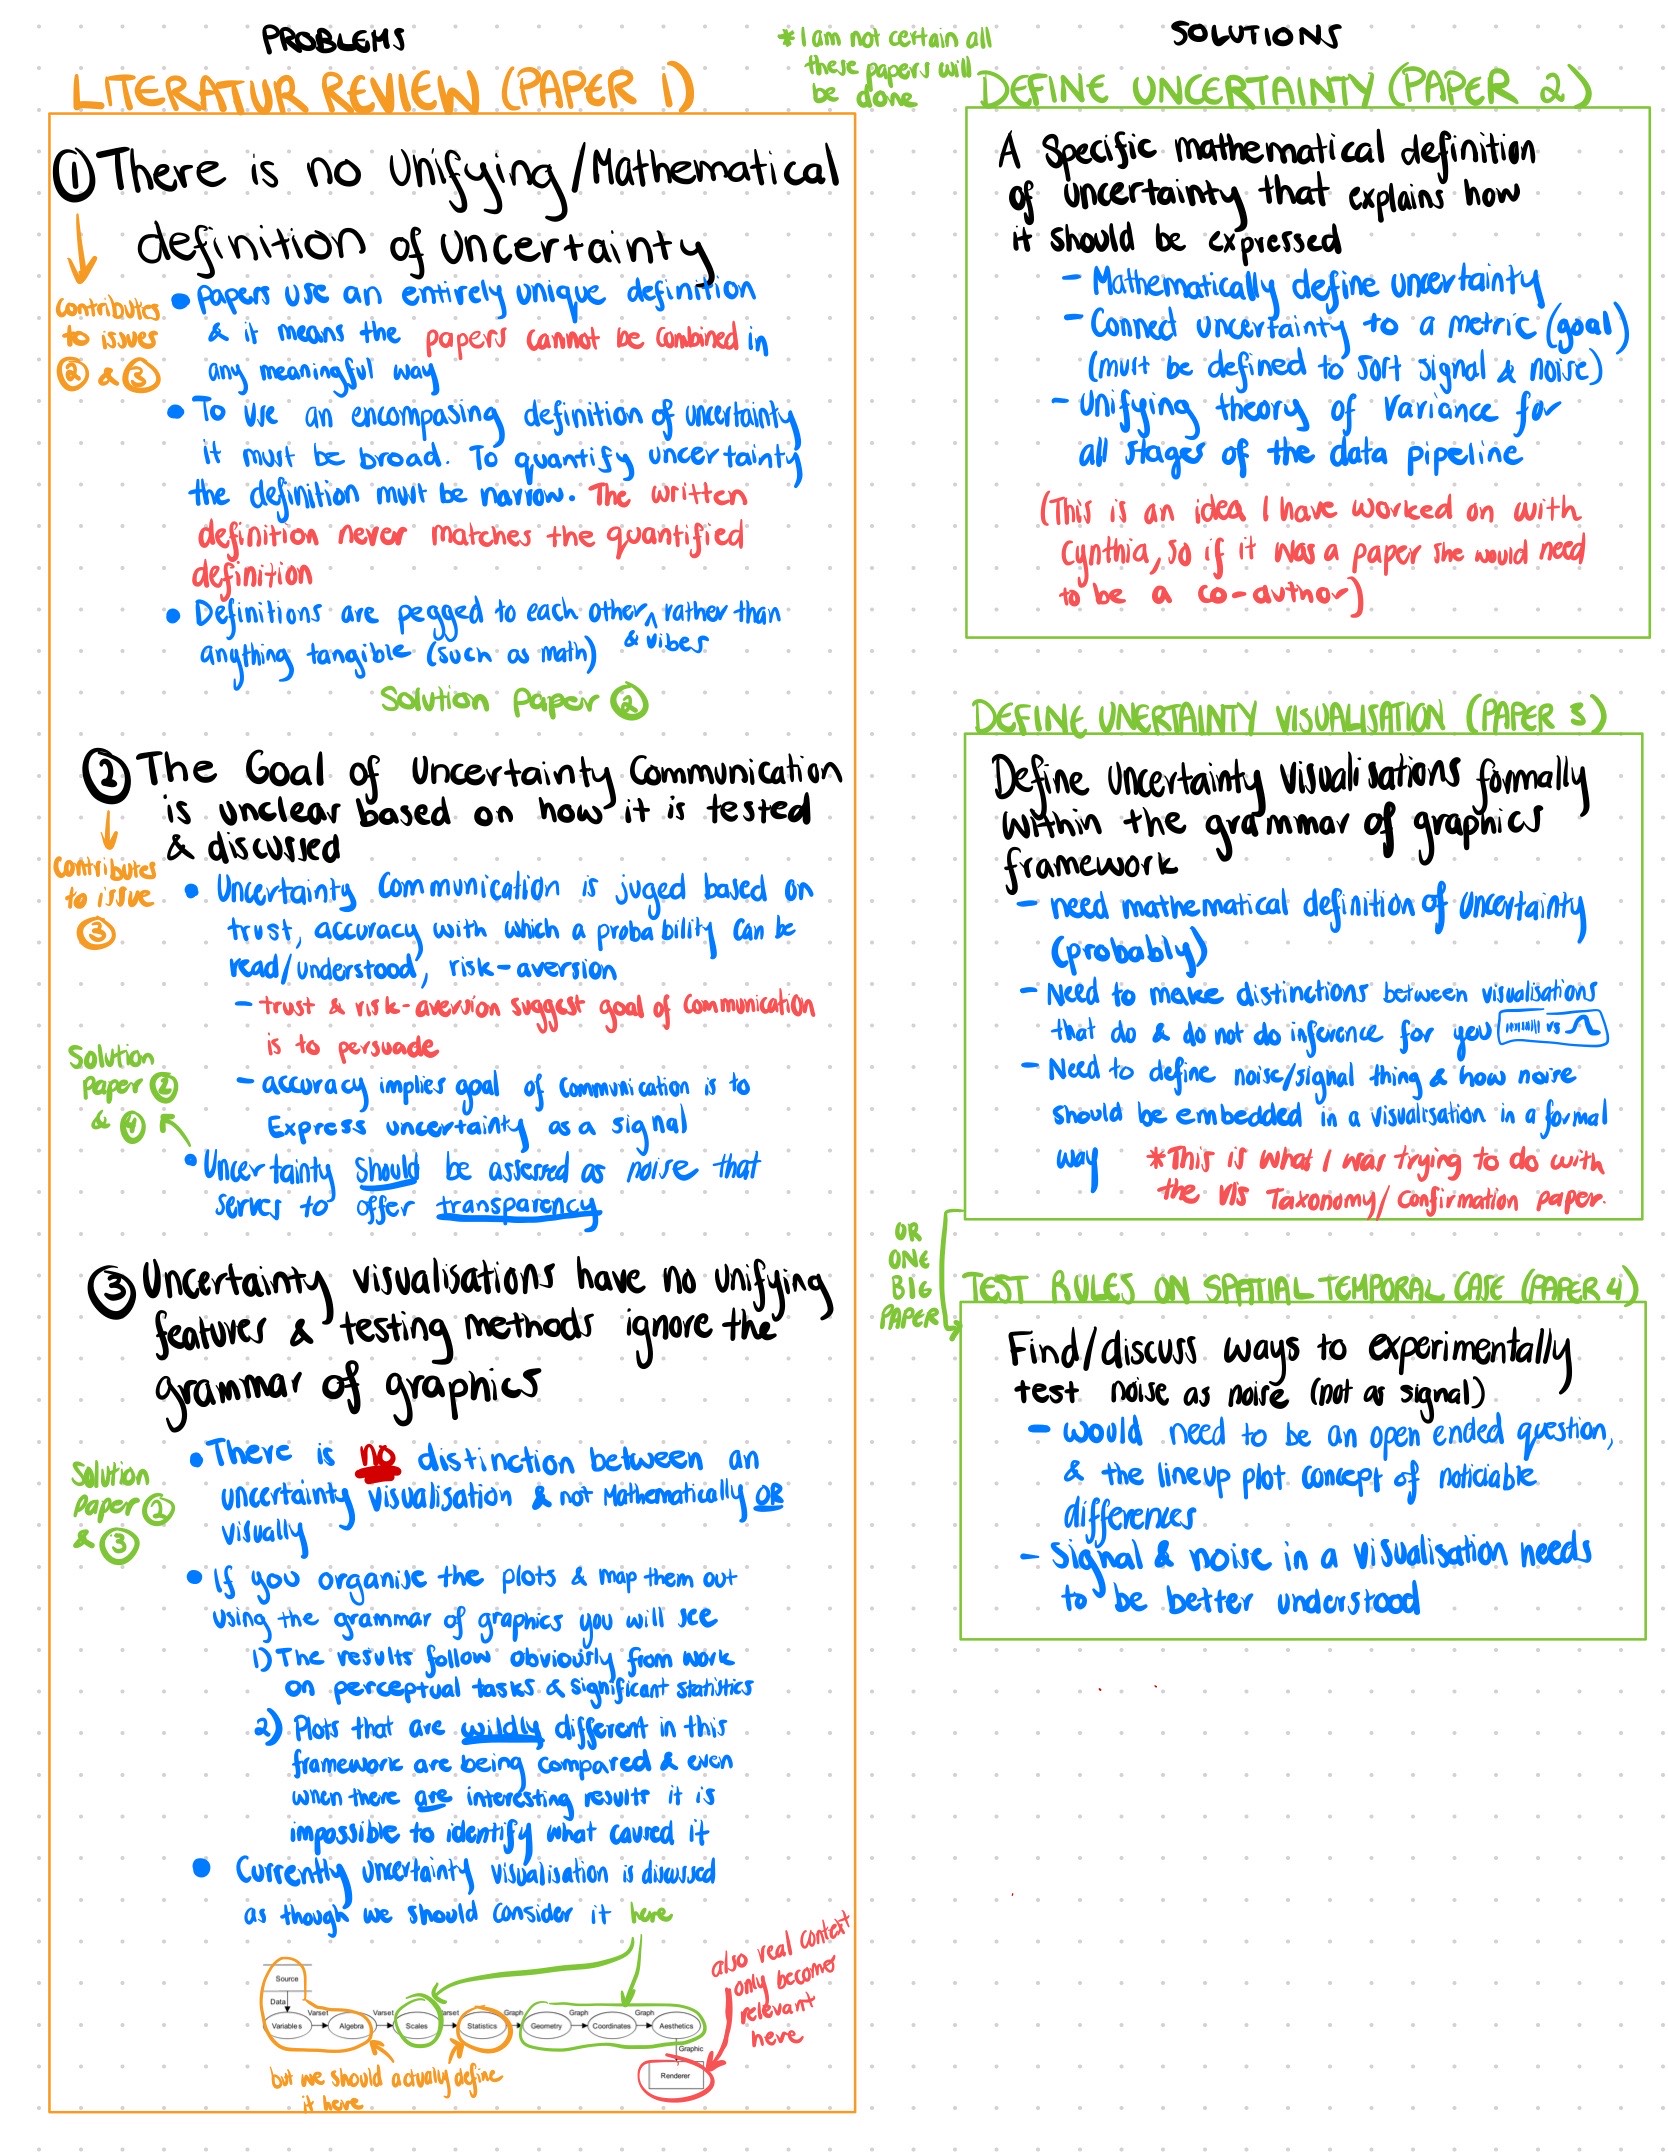 PROBLEMS
LITERATUR REVIEW (PAPER 1)
① There is no Unifying/Mathematical
definition of Uncertainty
Contributes
to issues
② & ③
• Papers use an entirely unique definition
& it means the papers cannot be combined in
any meaningful way
• To use an encompasing definition of uncertainty
it must be broad. To quantify uncertainty
the definition must be narrow. The written
definition never matches the quantified
definition
• Definitions are pegged to each other ^ rather than
& vibes
anything tangible (such as math)
Solution Paper ②
② The Goal of Uncertainty Communication
is unclear based on how it is tested
& discussed
Contributes
to issue
③
• Uncertainty Communication is juged based on
trust, accuracy with which a probability can be
read/understood, risk-aversion
- trust & risk-aversion suggest goal of communication
is to persuade
- accuracy implies goal of communication is to
Express uncertainty as a signal
Solution
Paper ②
& ④
• Uncertainty Should be assessed as noise that
serves to offer transparency
③ Uncertainty visualisations have no unifying
features & testing methods ignore the
grammar of graphics
Solution
Paper ②
& ③
• There is no distinction between an
uncertainty visualisation & not Mathematically OR
visually
• If you organise the plots & map them out
using the grammar of graphics you will see
1) The results follow obviously from work
on perceptual tasks & significant statistics
2) Plots that are wildly different in this
framework are being compared & even
when there are interesting results it is
impossible to identify what caused it
• Currently uncertainty visualisation is discussed
as though we should consider it here
Source
Data
Variables
Varset
Algebra
Varset
Scales
Varset
Statistics
Graph
Geometry
Graph
Coordinates
Graph
Aesthetics
Graphic
Renderer
but we should actualy define
it here
also real context
only become
relevant
here
* I am not certain all
these papers will
be done
SOLUTIONS
DEFINE UNCERTAINTY (PAPER 2)
A Specific mathematical definition
of uncertainty that explains how
it should be expressed
- Mathematically define uncertainty
- Connect uncertainty to a metric (goal)
(must be defined to sort signal & noise)
- Unifying theory of Variance for
all stages of the data pipeline
(This is an idea I have worked on with
Cynthia, so if it was a paper she would need
to be a co-author)
DEFINE UNERTAINTY VISUALISATION (PAPER 3)
Define Uncertainty Visualisations formally
within the grammar of graphics
framework
- need mathematical definition of Uncertainty
(probably)
- Need to make distinctions between visualisations
that do & do not do inference for you
vs
- Need to define noise/signal thing & how noise
should be embedded in a visualisation in a formal
way
*This is what I was trying to do with
the vis Taxonomy/Confirmation paper.
OR
ONE
BIG
PAPER
TEST RULES ON SPATIAL TEMPORAL CASE (PAPER 4)
Find/discuss ways to experimentally
test noise as noise (not as signal)
- would need to be an open ended question,
& the lineup plot concept of noticiable
differences
- Signal & noise in a visualisation needs
to be better understood